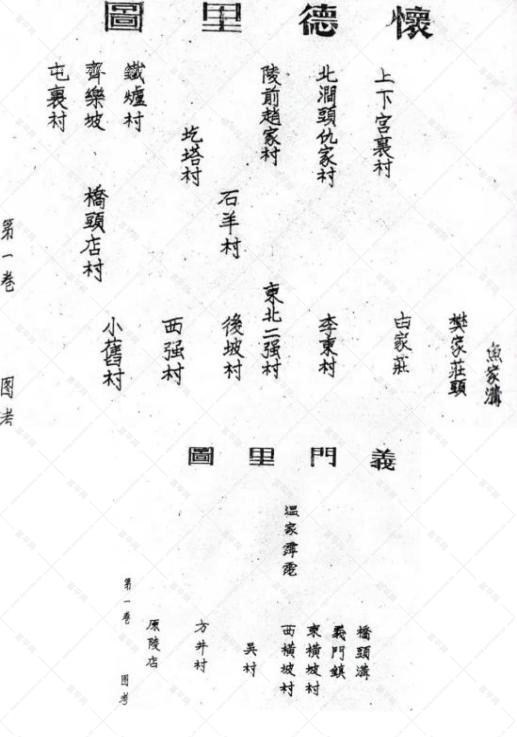 懷德里圖
上下宮裏村
北澗頭仇家村
陵前趙家村
圪塔村
鐵爐村
齊樂坡
屯裏村
石羊村
橋頭店村
魚家溝
樊家莊頭
李東村
東北二强村
後坡村
西强村
小舊村
第一卷
图考
義門里圖
橋頭溝
義門鎮
東橫坡村
西橫坡村
吴村
方井村
原陵店
第一卷
图考